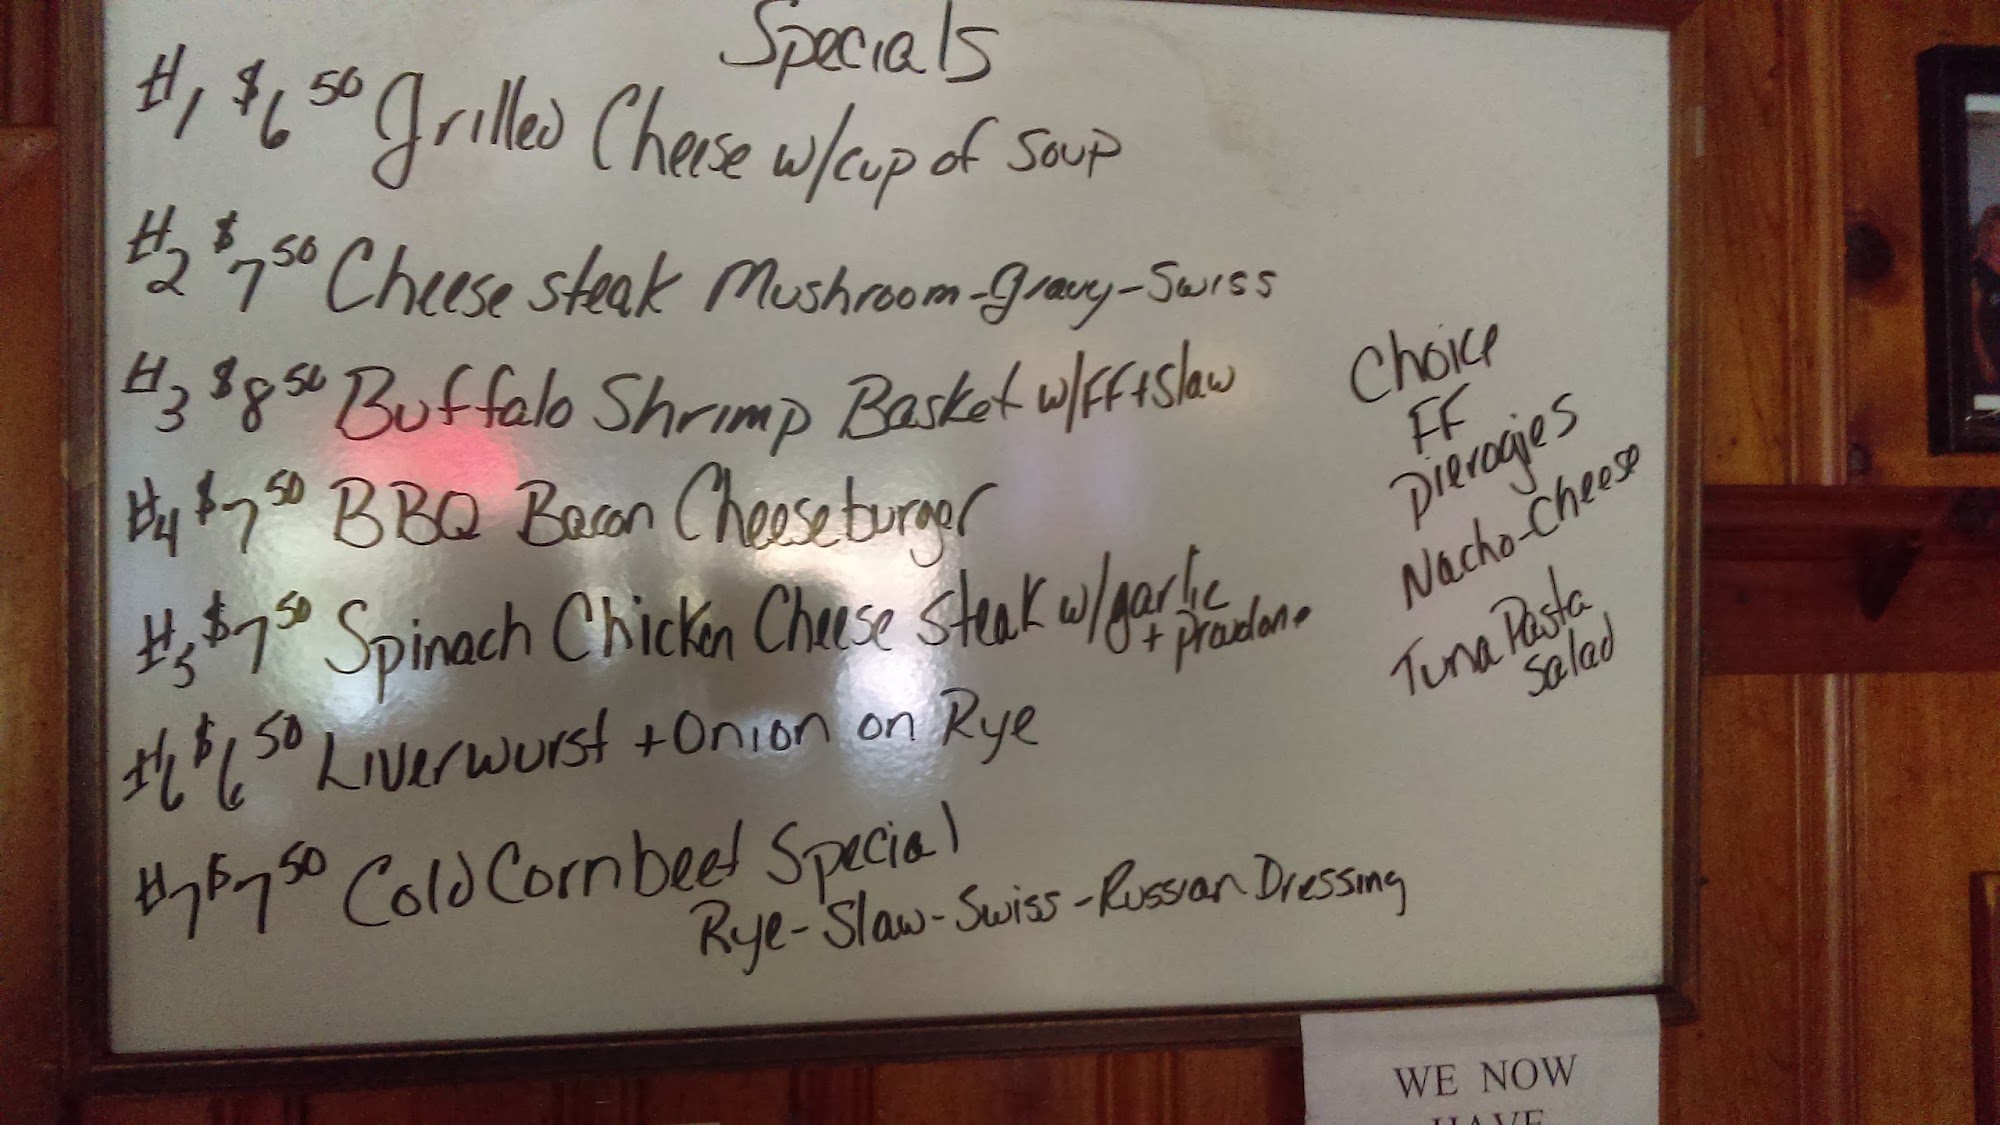 Specials
#1 $6 50 Grilled Cheese w/cup of Soup
#2 $7 50 Cheese steak Mushroom-gravy-Swiss
#3 $8 50 Buffalo Shrimp Basket w/FF+Slaw
#4 $7 50 BBQ Bacon Cheeseburger
#5 $7 50 Spinach Chicken Cheese Steak w/garlic
+ Provolone
#6 $6 50 Liverwurst + Onion on Rye
#7 $7 50 Cold Corn beef Special
Rye-Slaw-Swiss-Russian Dressing
Choice
FF
Pierogies
Nacho-Cheese
Tuna Pasta
Salad
WE NOW
HAVE